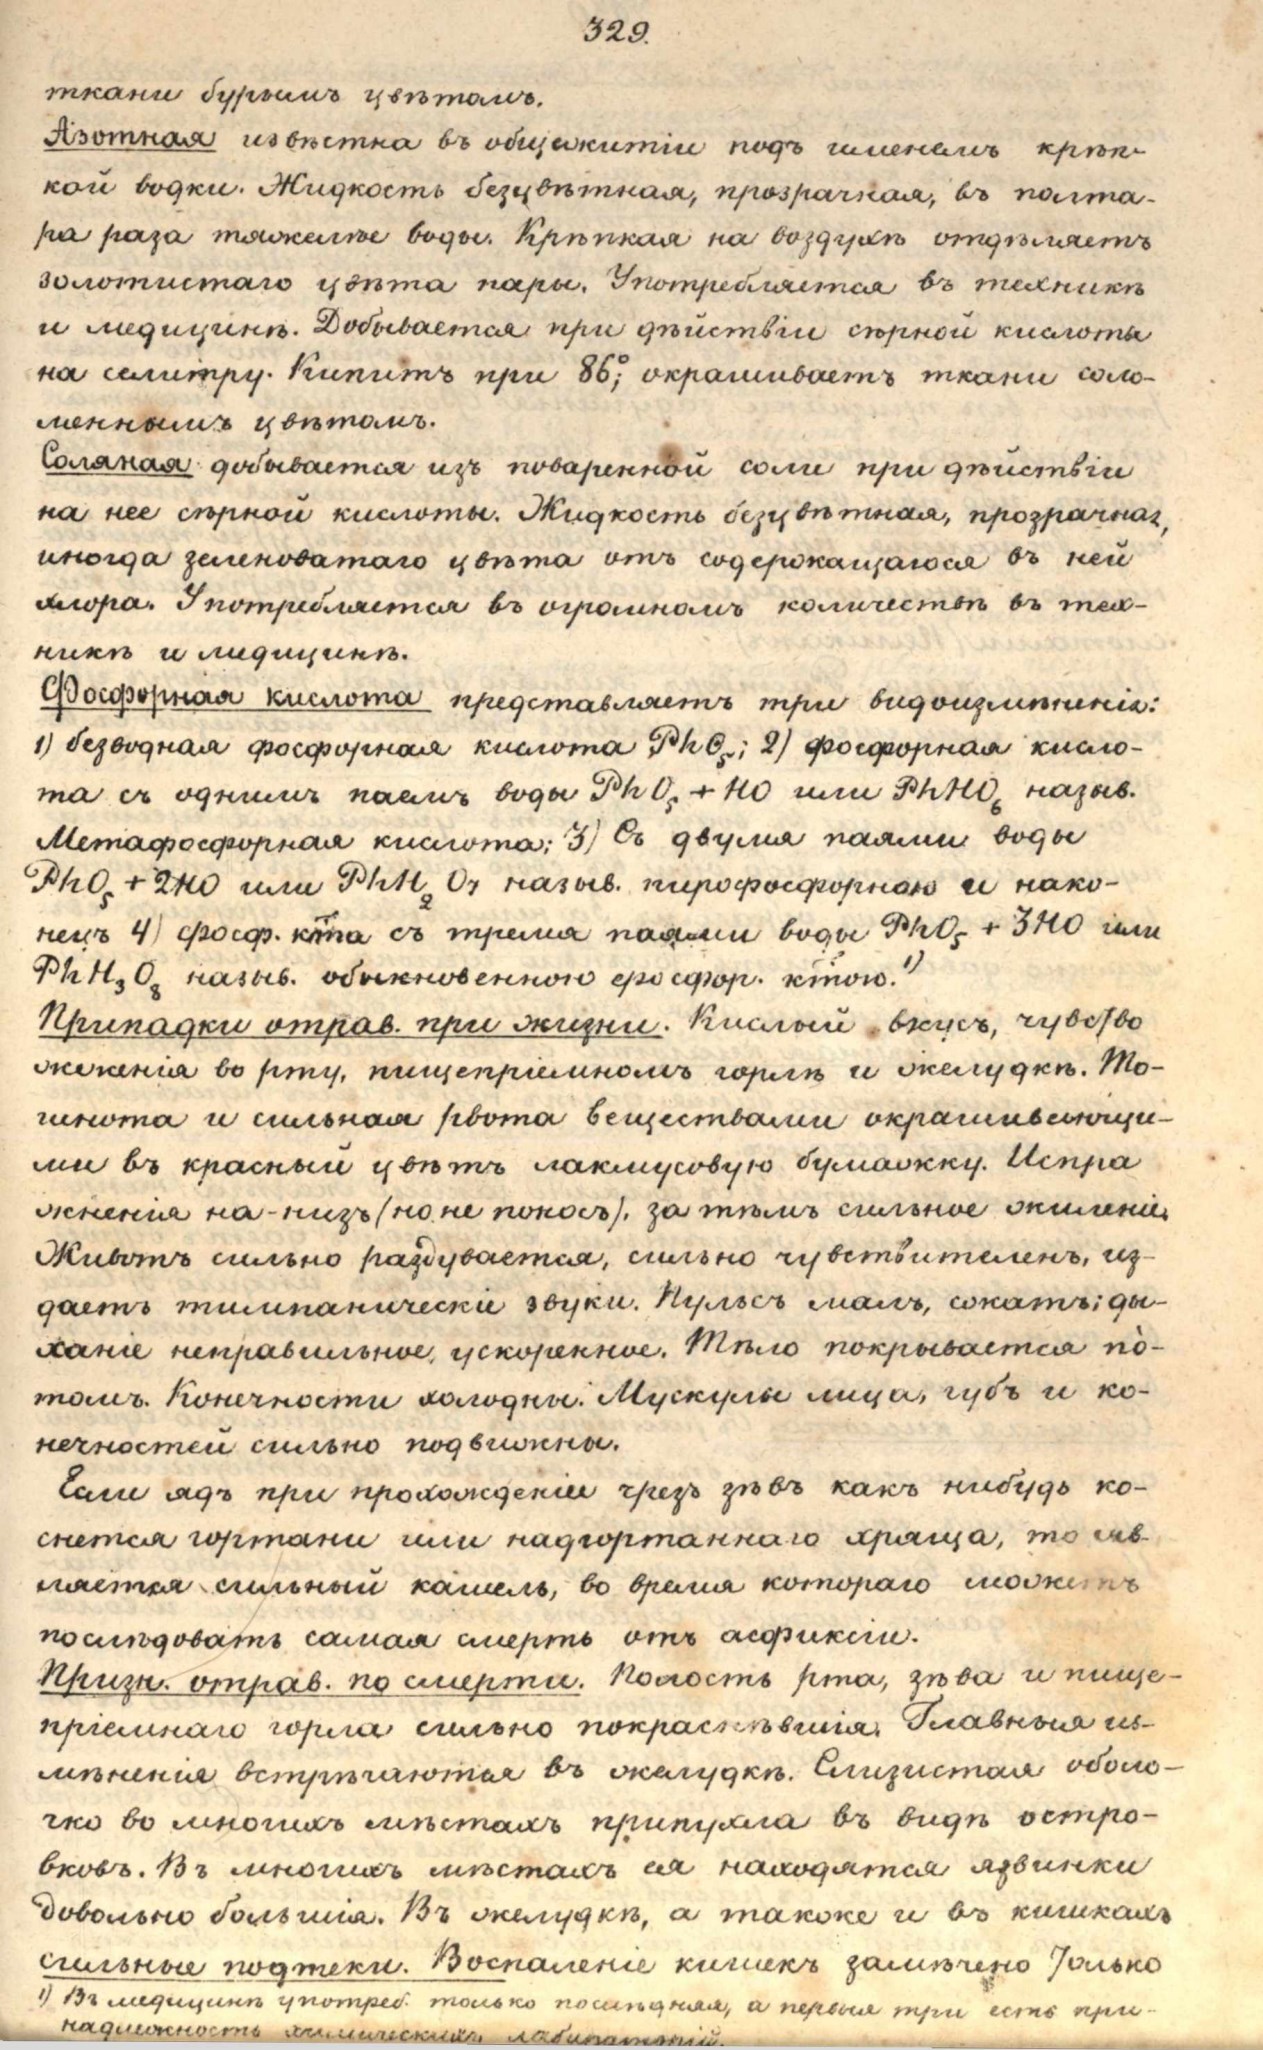 329.
ткани бурымъ цвѣтомъ.
Азотная извѣстна въ общежитіи подъ именемъ крѣп-
кой водки. Жидкость безцвѣтная, прозрачная, въ полта-
ра раза тяжелѣе воды. Крѣпкая на воздухѣ отдѣляетъ
золотистаго цвѣта пары. Употребляется въ техникѣ
и медицинѣ. Добывается при дѣйствіи сѣрной кислоты
на селитру. Кипитъ при 86°; окрашиваетъ ткани соло-
меннымъ цвѣтомъ.
Соляная добывается изъ поваренной соли при дѣйствіи
на нее сѣрной кислоты. Жидкость безцвѣтная, прозрачная,
иногда зеленоватаго цвѣта отъ содержащагося въ ней
хлора. Употребляется въ огромномъ количествѣ въ тех-
никѣ и медицинѣ.
Фосфорная кислота представляетъ три видоизмѣненія:
1) безводная фосфорная кислота PhO₅; 2) фосфорная кисло-
та съ однимъ паемъ воды PhO₅ + HO или PhHO₆ назыв.
Метафосфорная кислота; 3) Съ двумя паями воды
PhO₅ + 2HO или PhH₂O₇ назыв. пирофосфорною и нако-
нецъ 4) фосф. кта съ тремя паями воды PhO₅ + 3HO или
PhH₃O₈ назыв. обыкновенною фосфор. ктою. ¹⁾
Припадки отрав. при жизни. Кислый вкусъ, чувство
жженія во рту, пищепріемномъ горлѣ и желудкѣ. То-
шнота и сильная рвота веществами окрашивающи-
ми въ красный цвѣтъ лакмусовую бумажку. Испра
жненія на-низъ (но не поносъ), за тѣмъ сильное жиленіе.
Животъ сильно раздувается, сильно чувствителенъ, из-
даетъ тимпаническіе звуки. Пульсъ малъ, сжатъ; ды-
ханіе неправильное, ускоренное. Тѣло покрывается по-
томъ. Конечности холодны. Мускулы лица, губъ и ко-
нечностей сильно подвижны.
Если ядъ при прохожденіи чрезъ зѣвъ какъ нибудь ко-
снется гортани или надгортаннаго хряща, то яв-
ляется сильный кашель, во время котораго можетъ
послѣдовать самая смерть отъ асфиксіи.
Призн. отрав. по смерти. Полость рта, зѣва и пище-
пріемнаго горла сильно покраснѣвшія. Главныя из-
мѣненія встрѣчаются въ желудкѣ. Слизистая оболо-
чко во многихъ мѣстахъ припухла въ видѣ остро-
вковъ. Въ многихъ мѣстахъ ея находятся язвинки
довольно большія. Въ желудкѣ, а также и въ кишкахъ
сильные подтеки. Воспаленіе кишекъ замѣчено только
¹⁾ Въ медицинѣ употреб. только послѣдняя, а первыя три есть при-
надлежность химическихъ лабораторій.